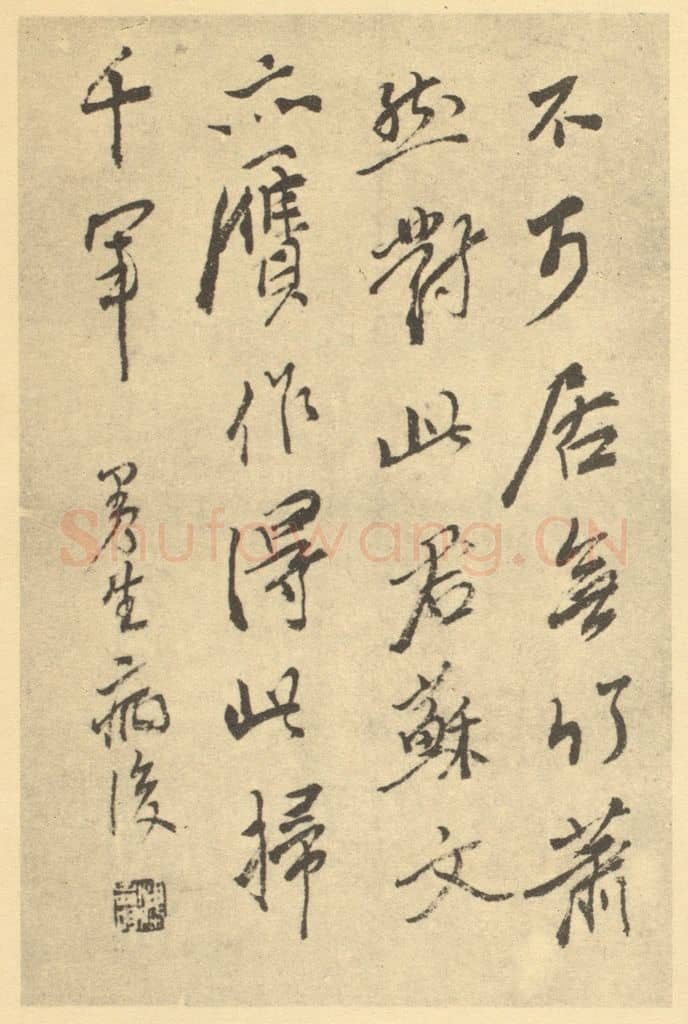 不可居無竹蕭
然對此君蘇文
亦贋作得此掃
千軍
生病後
Shufawang.CN